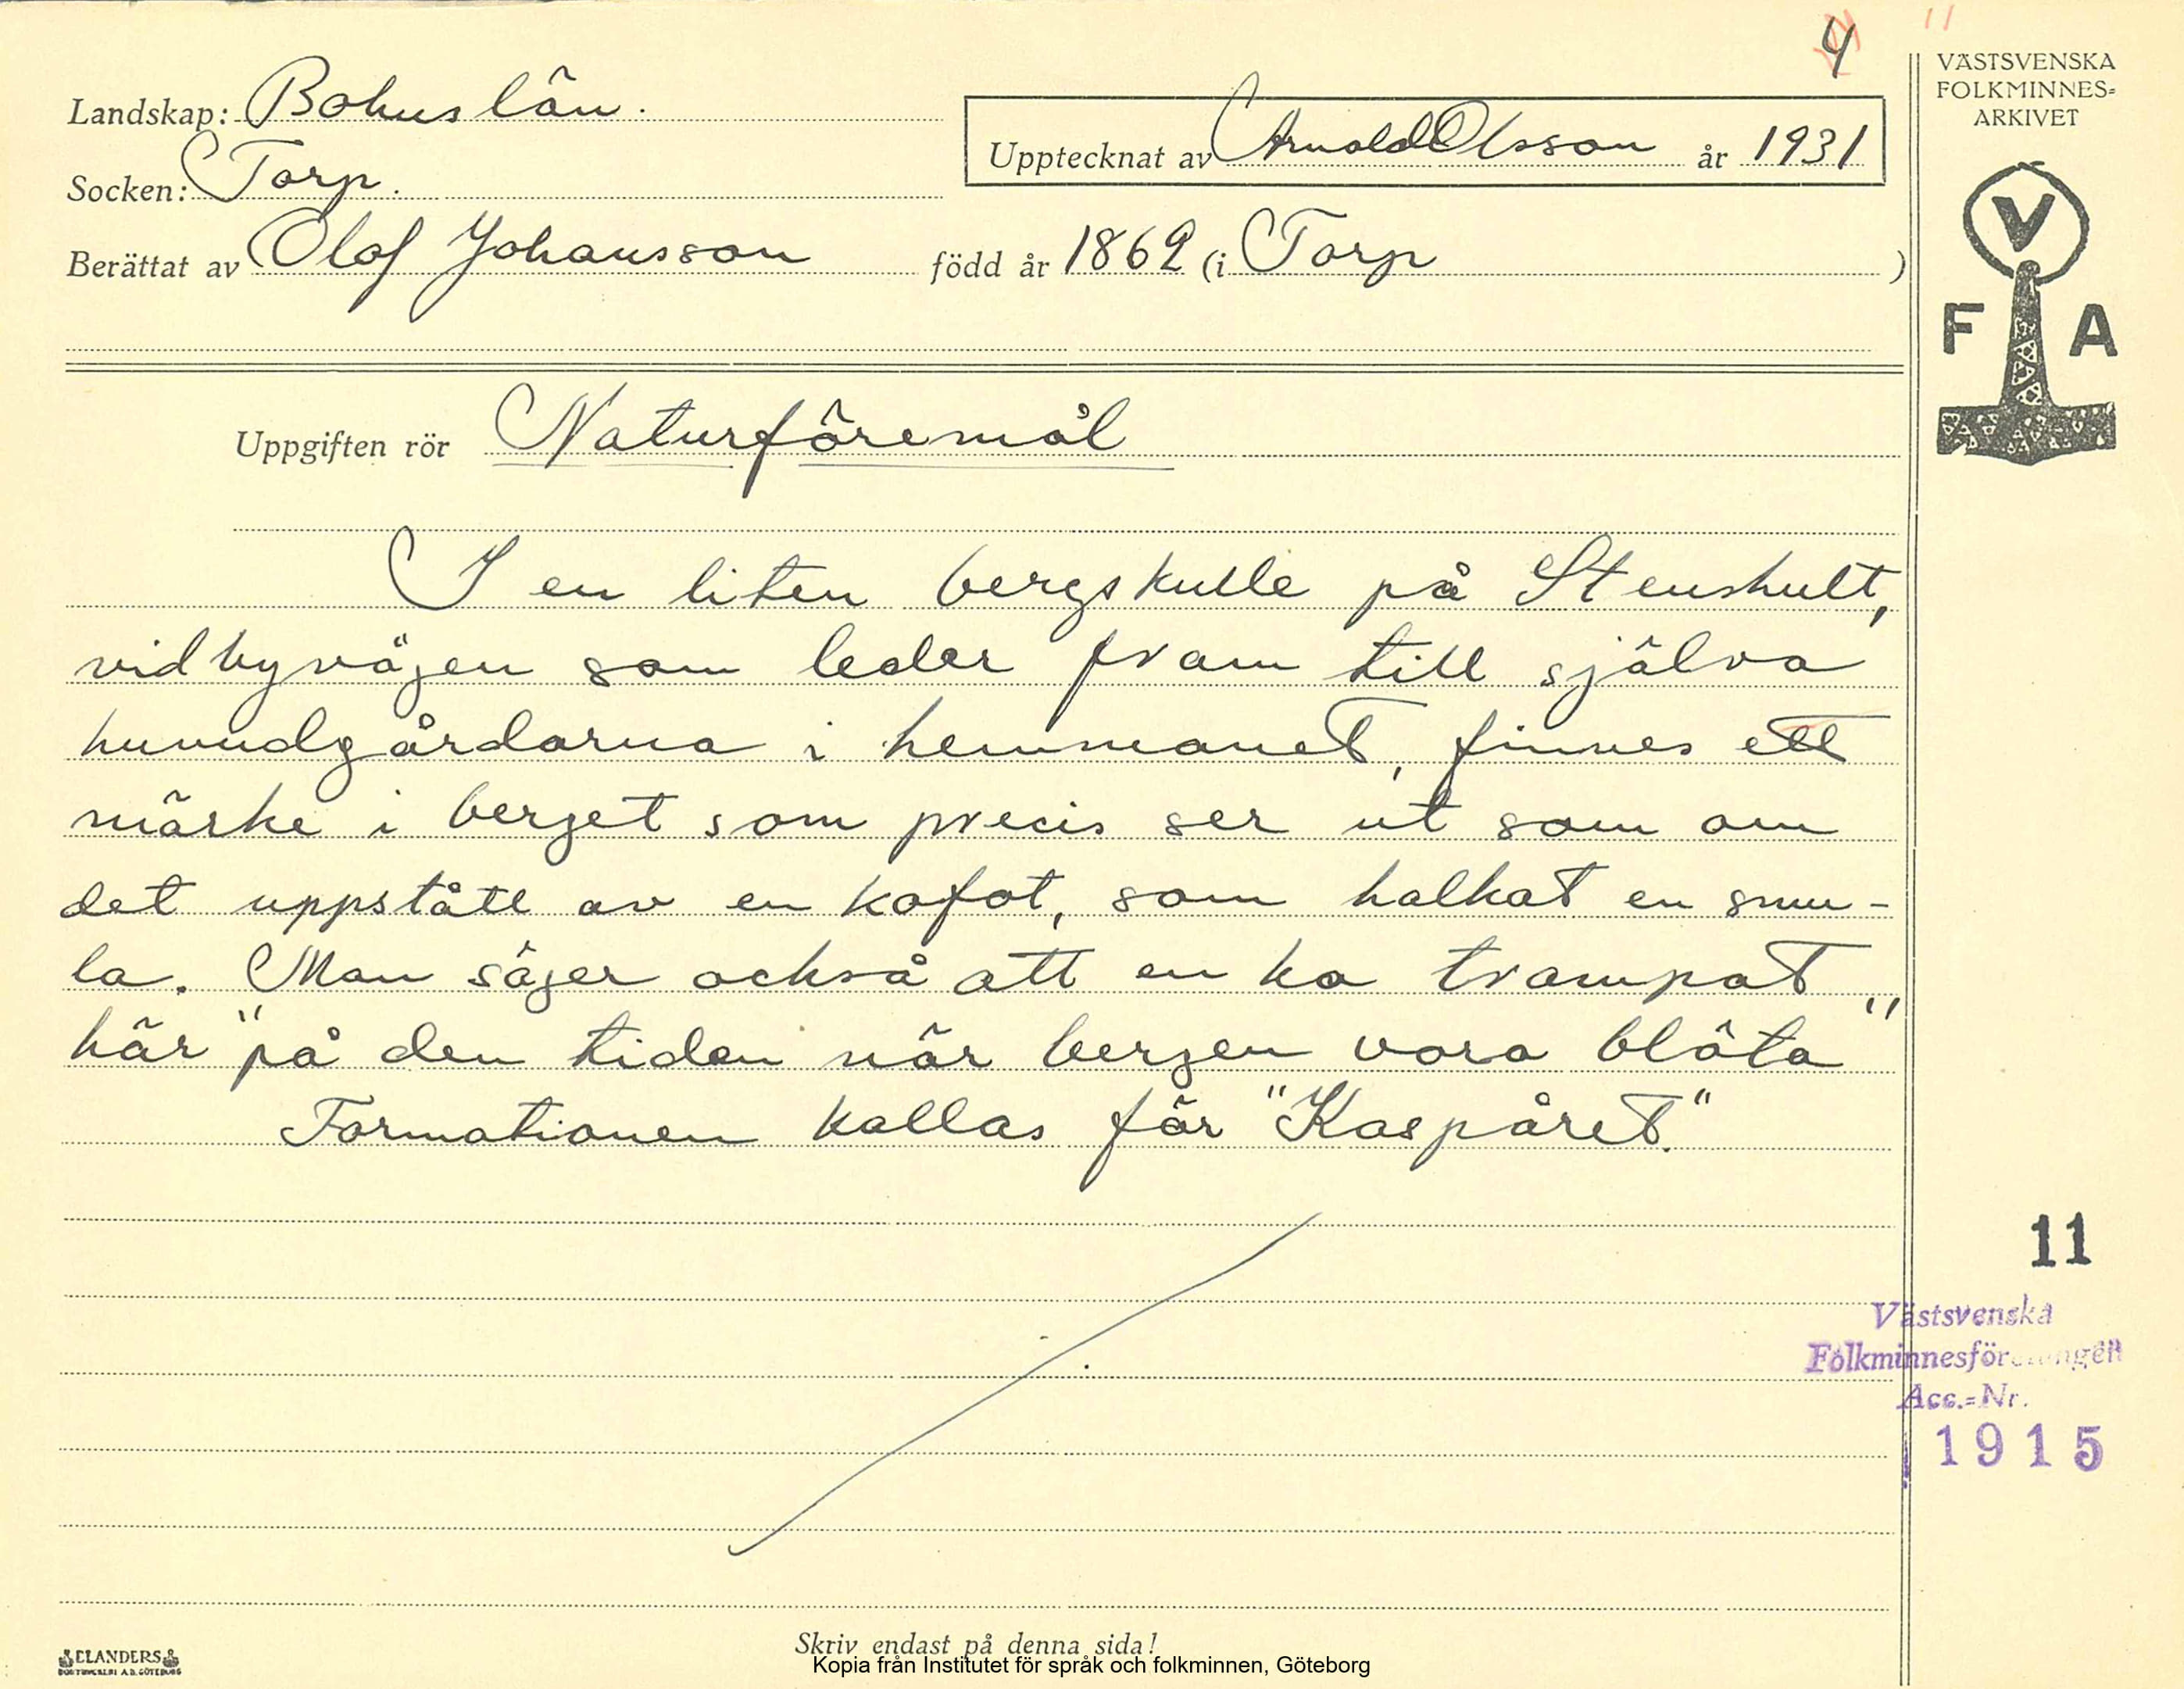 4
11
VÄSTSVENSKA
FOLKMINNES=
ARKIVET
Landskap: Bohuslän.
Upptecknat av Arnold Olsson år 1931
Socken: Torp.
Berättat av Olof Johansson född år 1862 (i Torp )
V
F A
Uppgiften rör Naturföremål
I en liten bergskulle på Stenshult,
vid byvägen som leder fram till själva
huvudgårdarna i hemmanet, finnes ett
märke i berget som precis ser ut som om
det uppstått av en kofot, som halkat en smu-
la. Man säger också att en ko trampat
här "på den tiden när bergen voro blöta"
Formationen kallas för "Kospåret."
11
Västsvenska
Folkminnesföreningen
Acc.=Nr.
1915
Skriv endast på denna sida!
ELANDERS
BOKTRYCKERI A.B. GÖTEBORG
Kopia från Institutet för språk och folkminnen, Göteborg